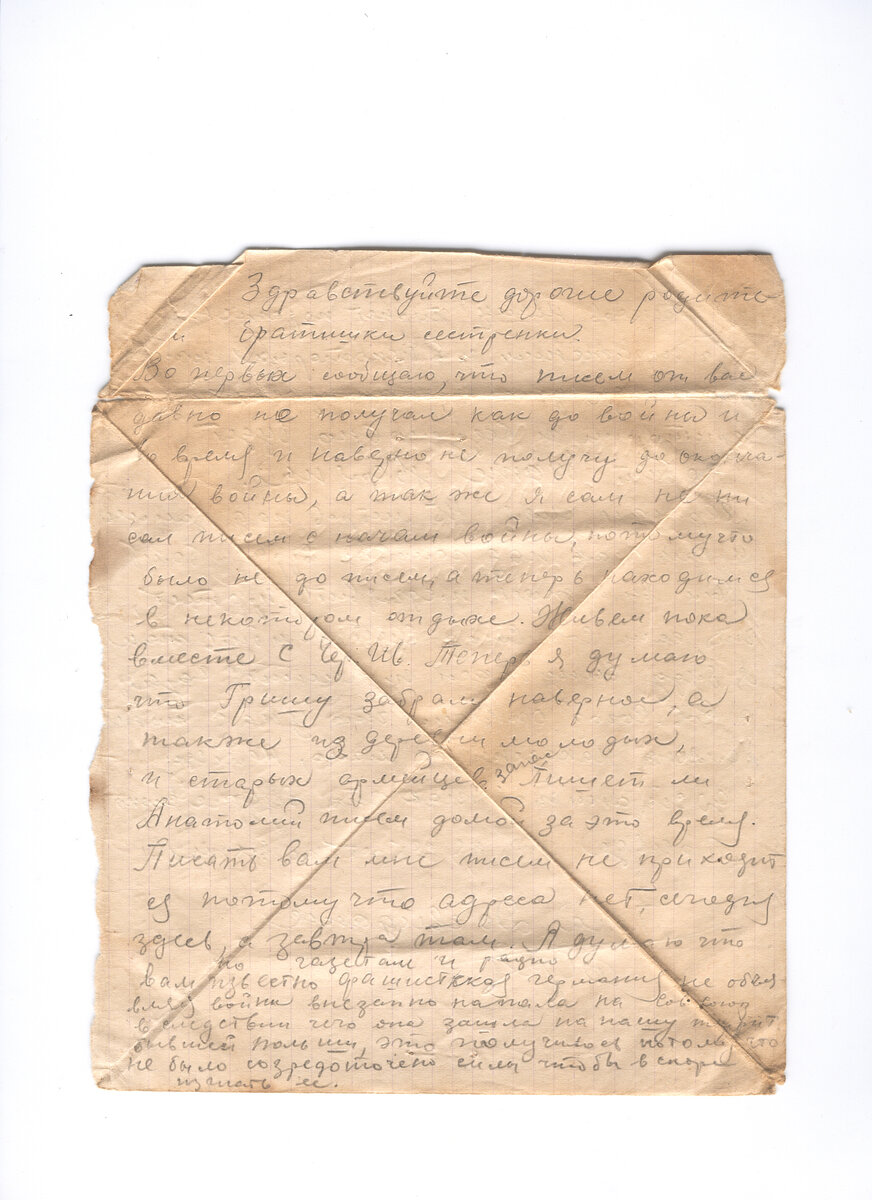 Здравствуйте дорогие родите-
и братишки сестренки.
Во первых сообщаю, что писем от вас
давно не получал как до войны и
во время и наверно не получу до оконча-
ния войны, а так же я сам не пи
сал писем с начала войны, потому что
было не до писем, а теперь находимся
в некотором отдыхе. Живем пока
вместе с Чер. Ив. Теперь я думаю
что Гришу забрали наверное, а
также из деревни молодых,
и старых армейцев запас Пишет ли
Анатолий писем домой за это время.
Писать вам мне писем не приходит
ся потому что адреса нет, сегодня
здесь, а завтра там. Я думаю что
по газетам и радио
вам известно фашистская германия не объя-
вляя войны внезапно напала на Сов союз
вследствии чего она зашла на нашу террит
бывшей польши, это получилось потому что
не было созредоточено силы чтобы вскоре
изгнать ее.